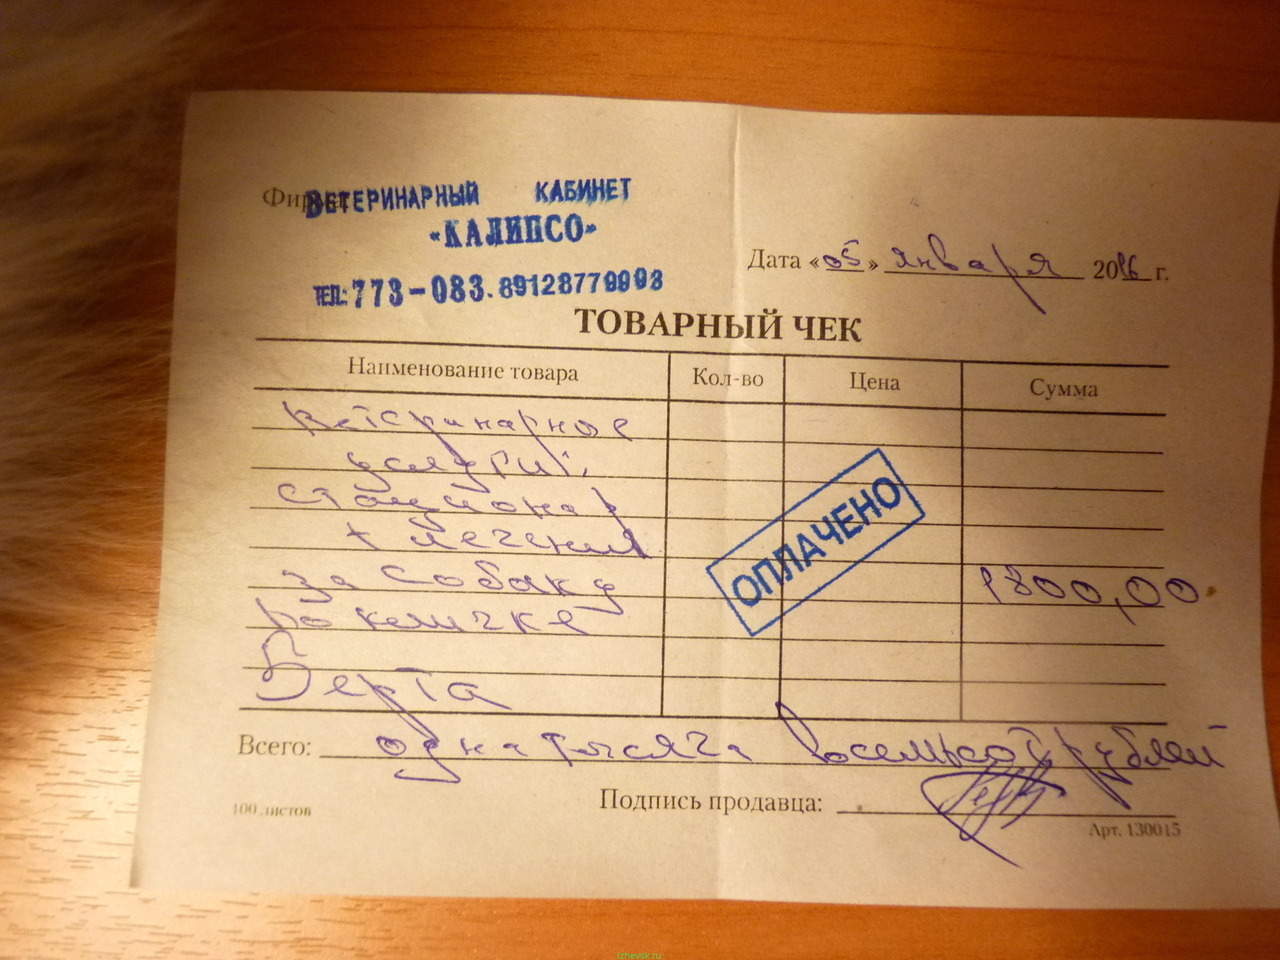 Фирма ВЕТЕРИНАРНЫЙ КАБИНЕТ
«КАЛИПСО»
ТЕЛ.: 773-083. 89128779993
Дата «05» января 2016 г.
ТОВАРНЫЙ ЧЕК
Наименование товара Кол-во Цена Сумма
Ветеринарные
услуги.
стационар
+ лечения
за собаку 1800,00
по кличке
Берта
ОПЛАЧЕНО
Всего: одна тысяча восемьсот рублей
Подпись продавца:
100 листов
Арт. 130015
izhevsk.ru